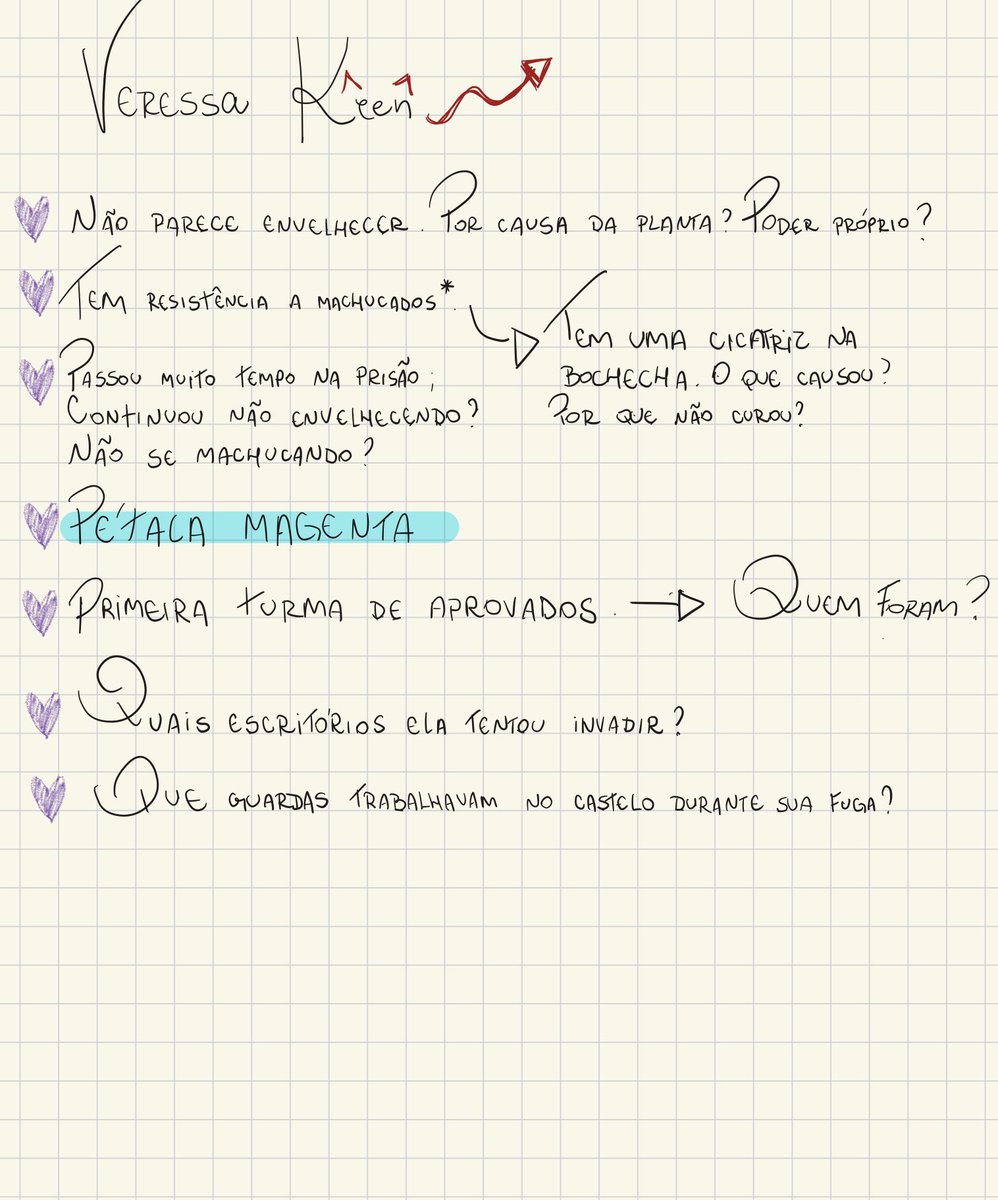 Veressa Kieen
NÃO PARECE ENVELHECER. POR CAUSA DA PLANTA? PODER PRÓPRIO?
TEM RESISTÊNCIA A MACHUCADOS*.
TEM UMA CICATRIZ NA
BOCHECHA. O QUE CAUSOU?
POR QUE NÃO CUROU?
PASSOU MUITO TEMPO NA PRISÃO;
CONTINUOU NÃO ENVELHECENDO?
NÃO SE MACHUCANDO?
PÉTALA MAGENTA
PRIMEIRA TURMA DE APROVADOS. → QUEM FORAM?
QUAIS ESCRITÓRIOS ELA TENTOU INVADIR?
QUE GUARDAS TRABALHAVAM NO CASTELO DURANTE SUA FUGA?